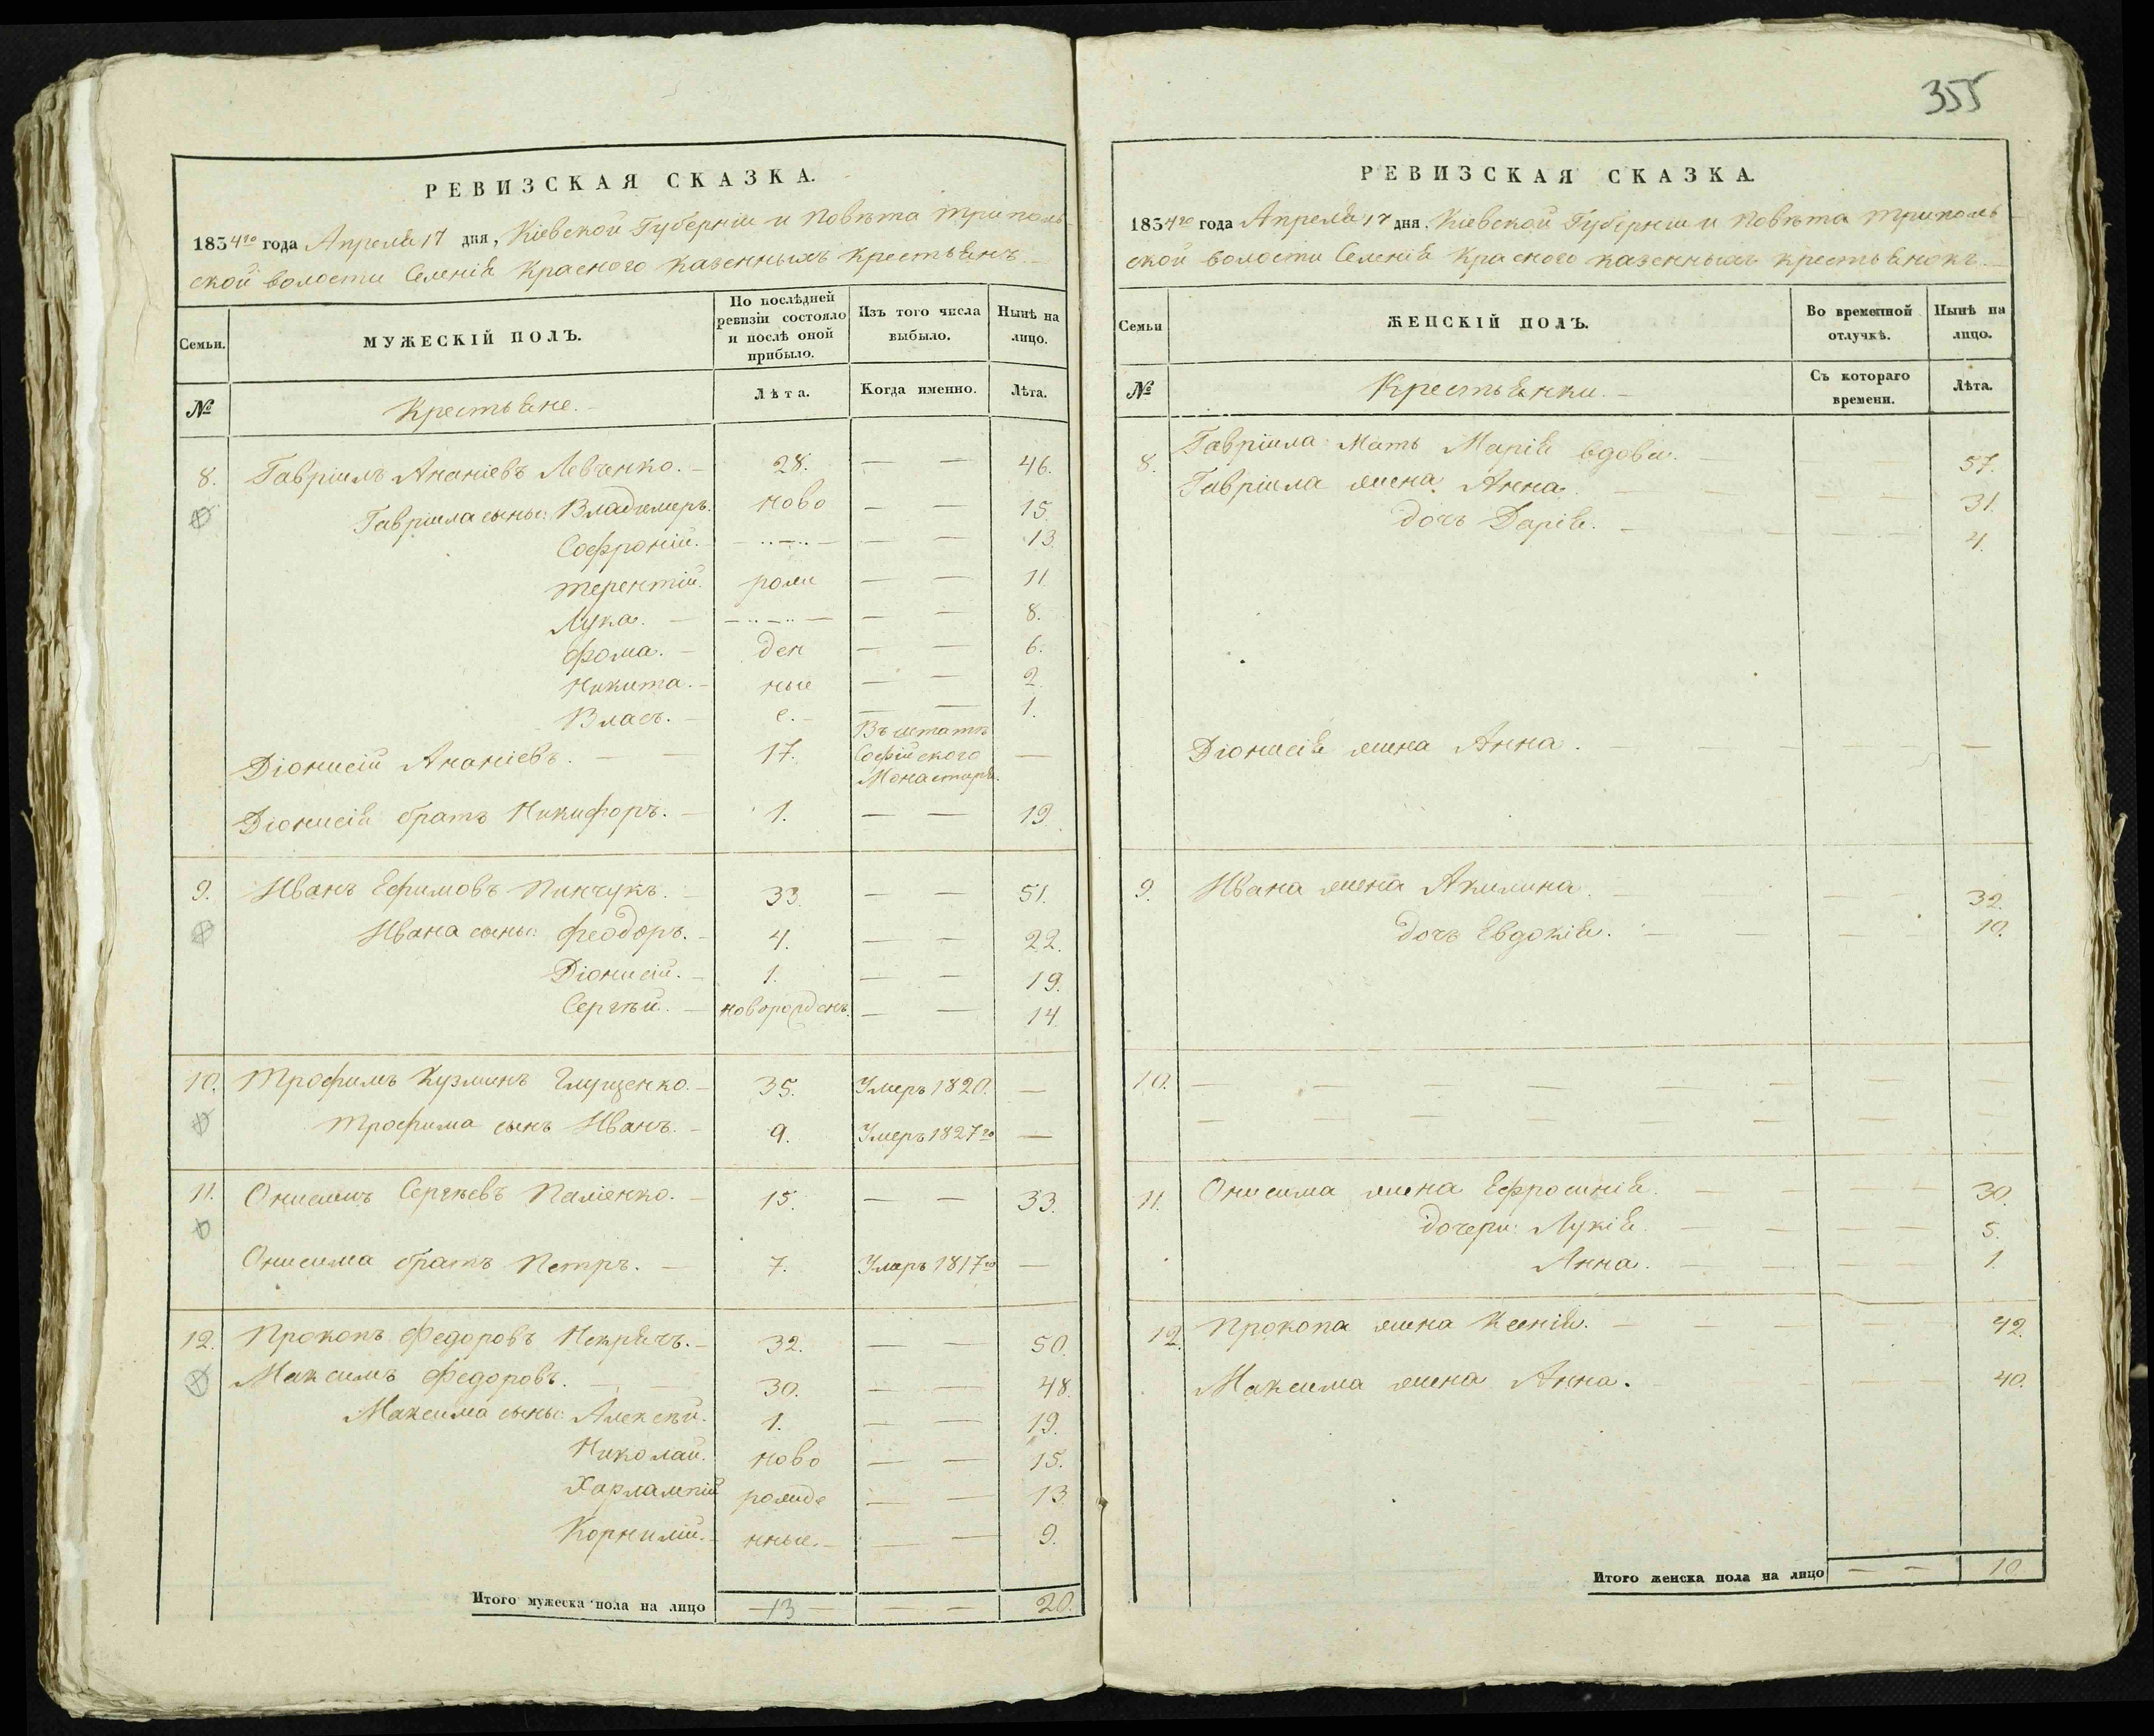 355
РЕВИЗСКАЯ СКАЗКА.
1834го года Апреля 17 дня, Кіевской Губерніи и Повѣта Триполь
ской волости Селенія Красного казенныхъ крестьянъ.
Семьи.
МУЖЕСКІЙ ПОЛЪ.
По послѣдней ревизіи состояло и послѣ оной прибыло.
Изъ того числа выбыло.
Нынѣ на лицо.
№
Крестьяне.
Лѣта.
Когда именно.
Лѣта.
8. Гавріилъ Ананіевъ Левченко. 28. — — 46.
Гавріила сыны: Владимеръ. ново — — 15.
Софроній. — — 13.
Терентій. рожі — — 11.
Лука. — — 8.
Фома. ден — — 6.
Никита. ные — — 2.
Власъ. е. — — 1.
Діонисій Ананіевъ. — — 17. Въ штатѣ Софійского Монастиря. —
Діонисія братъ Никифоръ. 1. — — 19.
9. Иванъ Ефимовъ Пинчукъ. 33. — — 51.
Ивана сыны: Феодоръ. 4. — — 22.
Діонисій. 1. — — 19.
Сергѣй. новорожденъ. — — 14.
10. Трофимъ Кузминъ Глущенко. 35. Умеръ 1820. —
Трофима сынъ Иванъ. 9. Умеръ 1827го —
11. Онисимъ Сергѣевъ Паліенко. 15. — — 33.
Онисима братъ Петръ. 7. Умеръ 1817го —
12. Прокопъ Федоровъ Некрячъ. 32. — — 50.
Максимъ Федоровъ. 30. — — 48.
Максима сыны: Алексѣй. 1. — — 19.
Николай. ново — — 15.
Харлампій рожде — — 13.
Корнилій. нные. — — 9.
Итого мужеска пола на лицо — 13 — — — 20.
РЕВИЗСКАЯ СКАЗКА.
1834го года Апреля 17 дня, Кіевской Губерніи и Повѣта Триполь
ской волости Селенія Красного казенныхъ крестьянокъ.
Семьи
ЖЕНСКІЙ ПОЛЪ.
Во временной отлучкѣ.
Нынѣ на лицо.
№
Крестьянки.
Съ котораго времени.
Лѣта.
8. Гавріила Мать Марія вдова. — — 57.
Гавріила жена Анна. — — 31.
дочь Дарія. — — 4.
Діонисія жена Анна. — — —
9. Ивана жена Акилина. — — 32.
дочь Евдокія. — — 10.
10. — — — — — — — — —
— — — — — — — — —
11. Онисима жена Ефросинія. — — 30.
дочери: Лукія. — — 5.
Анна. — — 1.
12. Прокопа жена Ксенія. — — 42.
Максима жена Анна. — — 40.
Итого женска пола на лицо — — 10